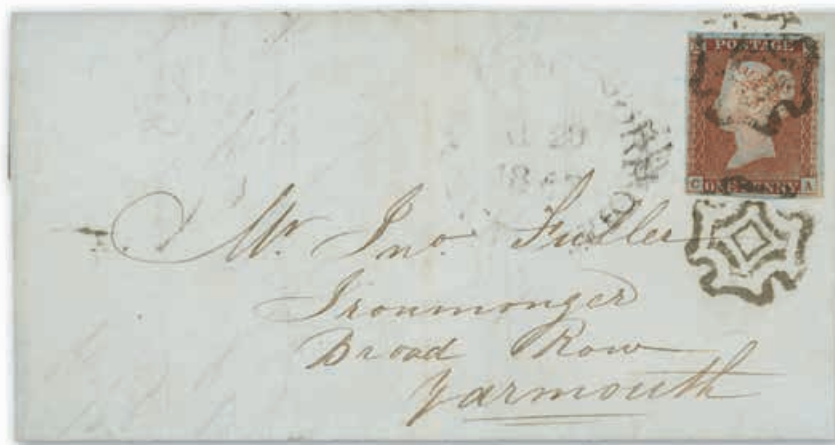 POSTAGE
C ONE PENNY A
Mr. Jno. Fuller
Ironmonger
Broad Row
Yarmouth